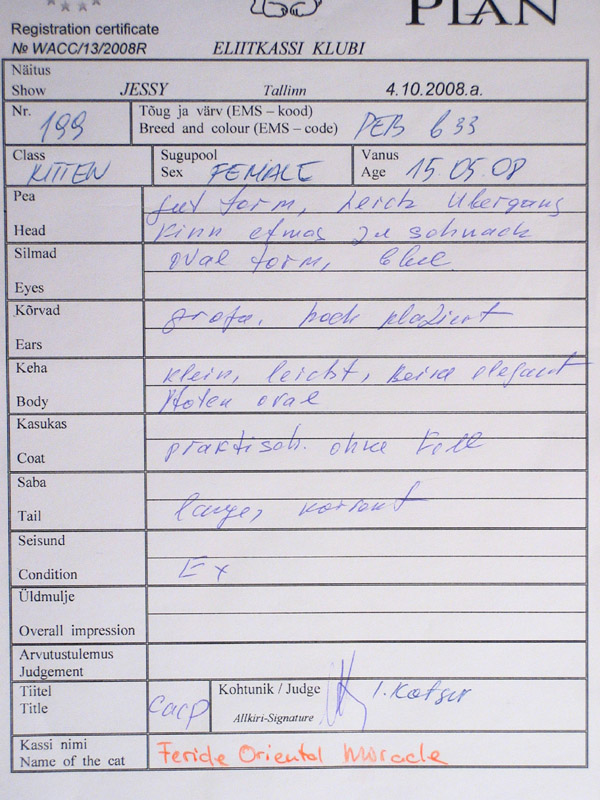 PLAN
Registration certificate
№ WACC/13/2008R
ELIITKASSI KLUBI
Näitus
Show JESSY Tallinn 4.10.2008.a.
Nr. 199
Tõug ja värv (EMS – kood)
Breed and colour (EMS – code) PEB b 33
Class KITTEN
Sugupool
Sex FEMALE
Vanus
Age 15.05.08
Pea gut form, leich Ubergang
Head Kinn etwas zu schwach
Silmad oval form, blue
Eyes
Kõrvad große, hoch plaziert
Ears
Keha klein, leicht, Beine elegant
Body Pfoten oval
Kasukas
Coat praktisch ohne Fell
Saba
Tail lange, korrekt
Seisund
Condition Ex
Üldmulje
Overall impression
Arvutustulemus
Judgement
Tiitel
Title cacp
Kohtunik / Judge
Allkiri-Signature
Kassi nimi
Name of the cat Feride Oriental Miracle